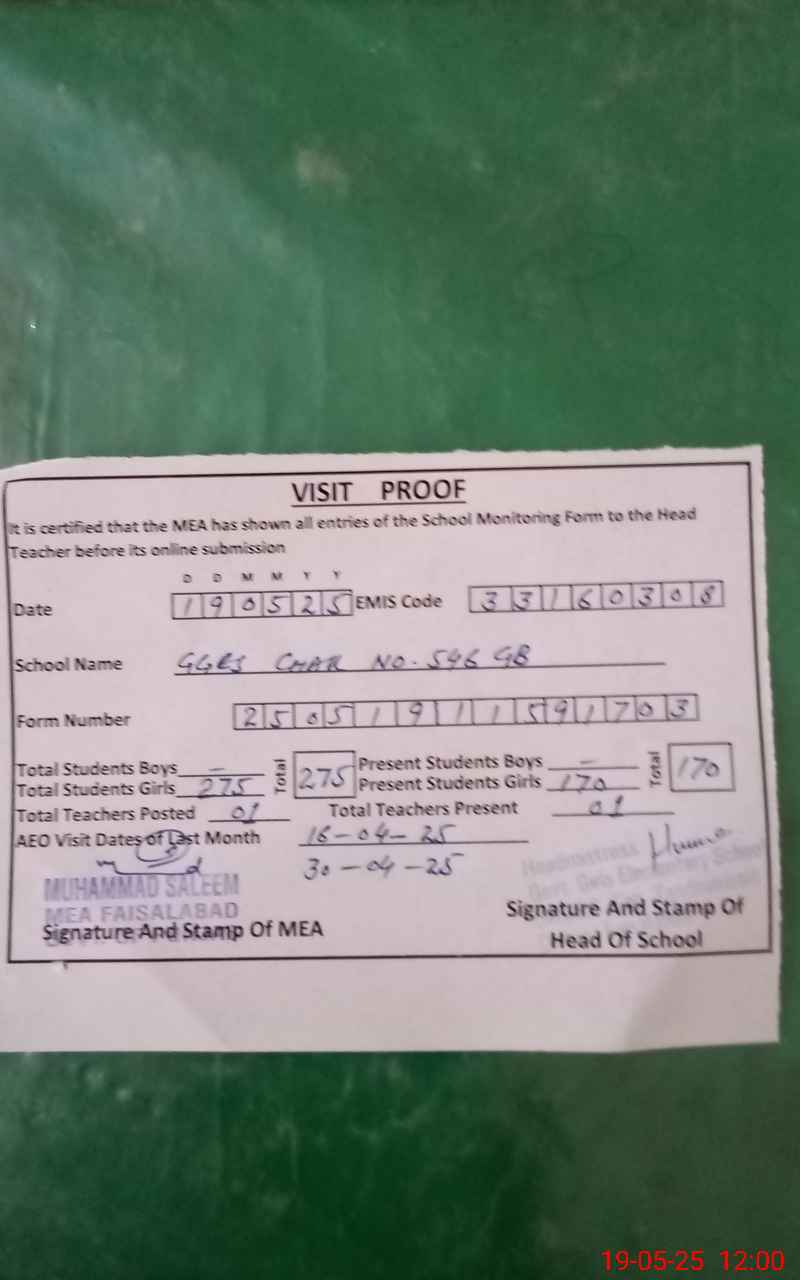 VISIT PROOF
It is certified that the MEA has shown all entries of the School Monitoring Form to the Head
Teacher before its online submission
D D M M Y Y
Date 190525 EMIS Code 33160308
School Name GGES CHAK NO. 546 GB
Form Number 25051911591703
Total Students Boys - Total 275 Present Students Boys - Total 170
Total Students Girls 275 Present Students Girls 170
Total Teachers Posted 01 Total Teachers Present 01
AEO Visit Dates of Last Month 16-04-25
30-04-25
MUHAMMAD SALEEM
MEA FAISALABAD
Signature And Stamp Of MEA
Headmistress
Govt. Girls Elementary School
Signature And Stamp Of
Head Of School
19-05-25 12:00